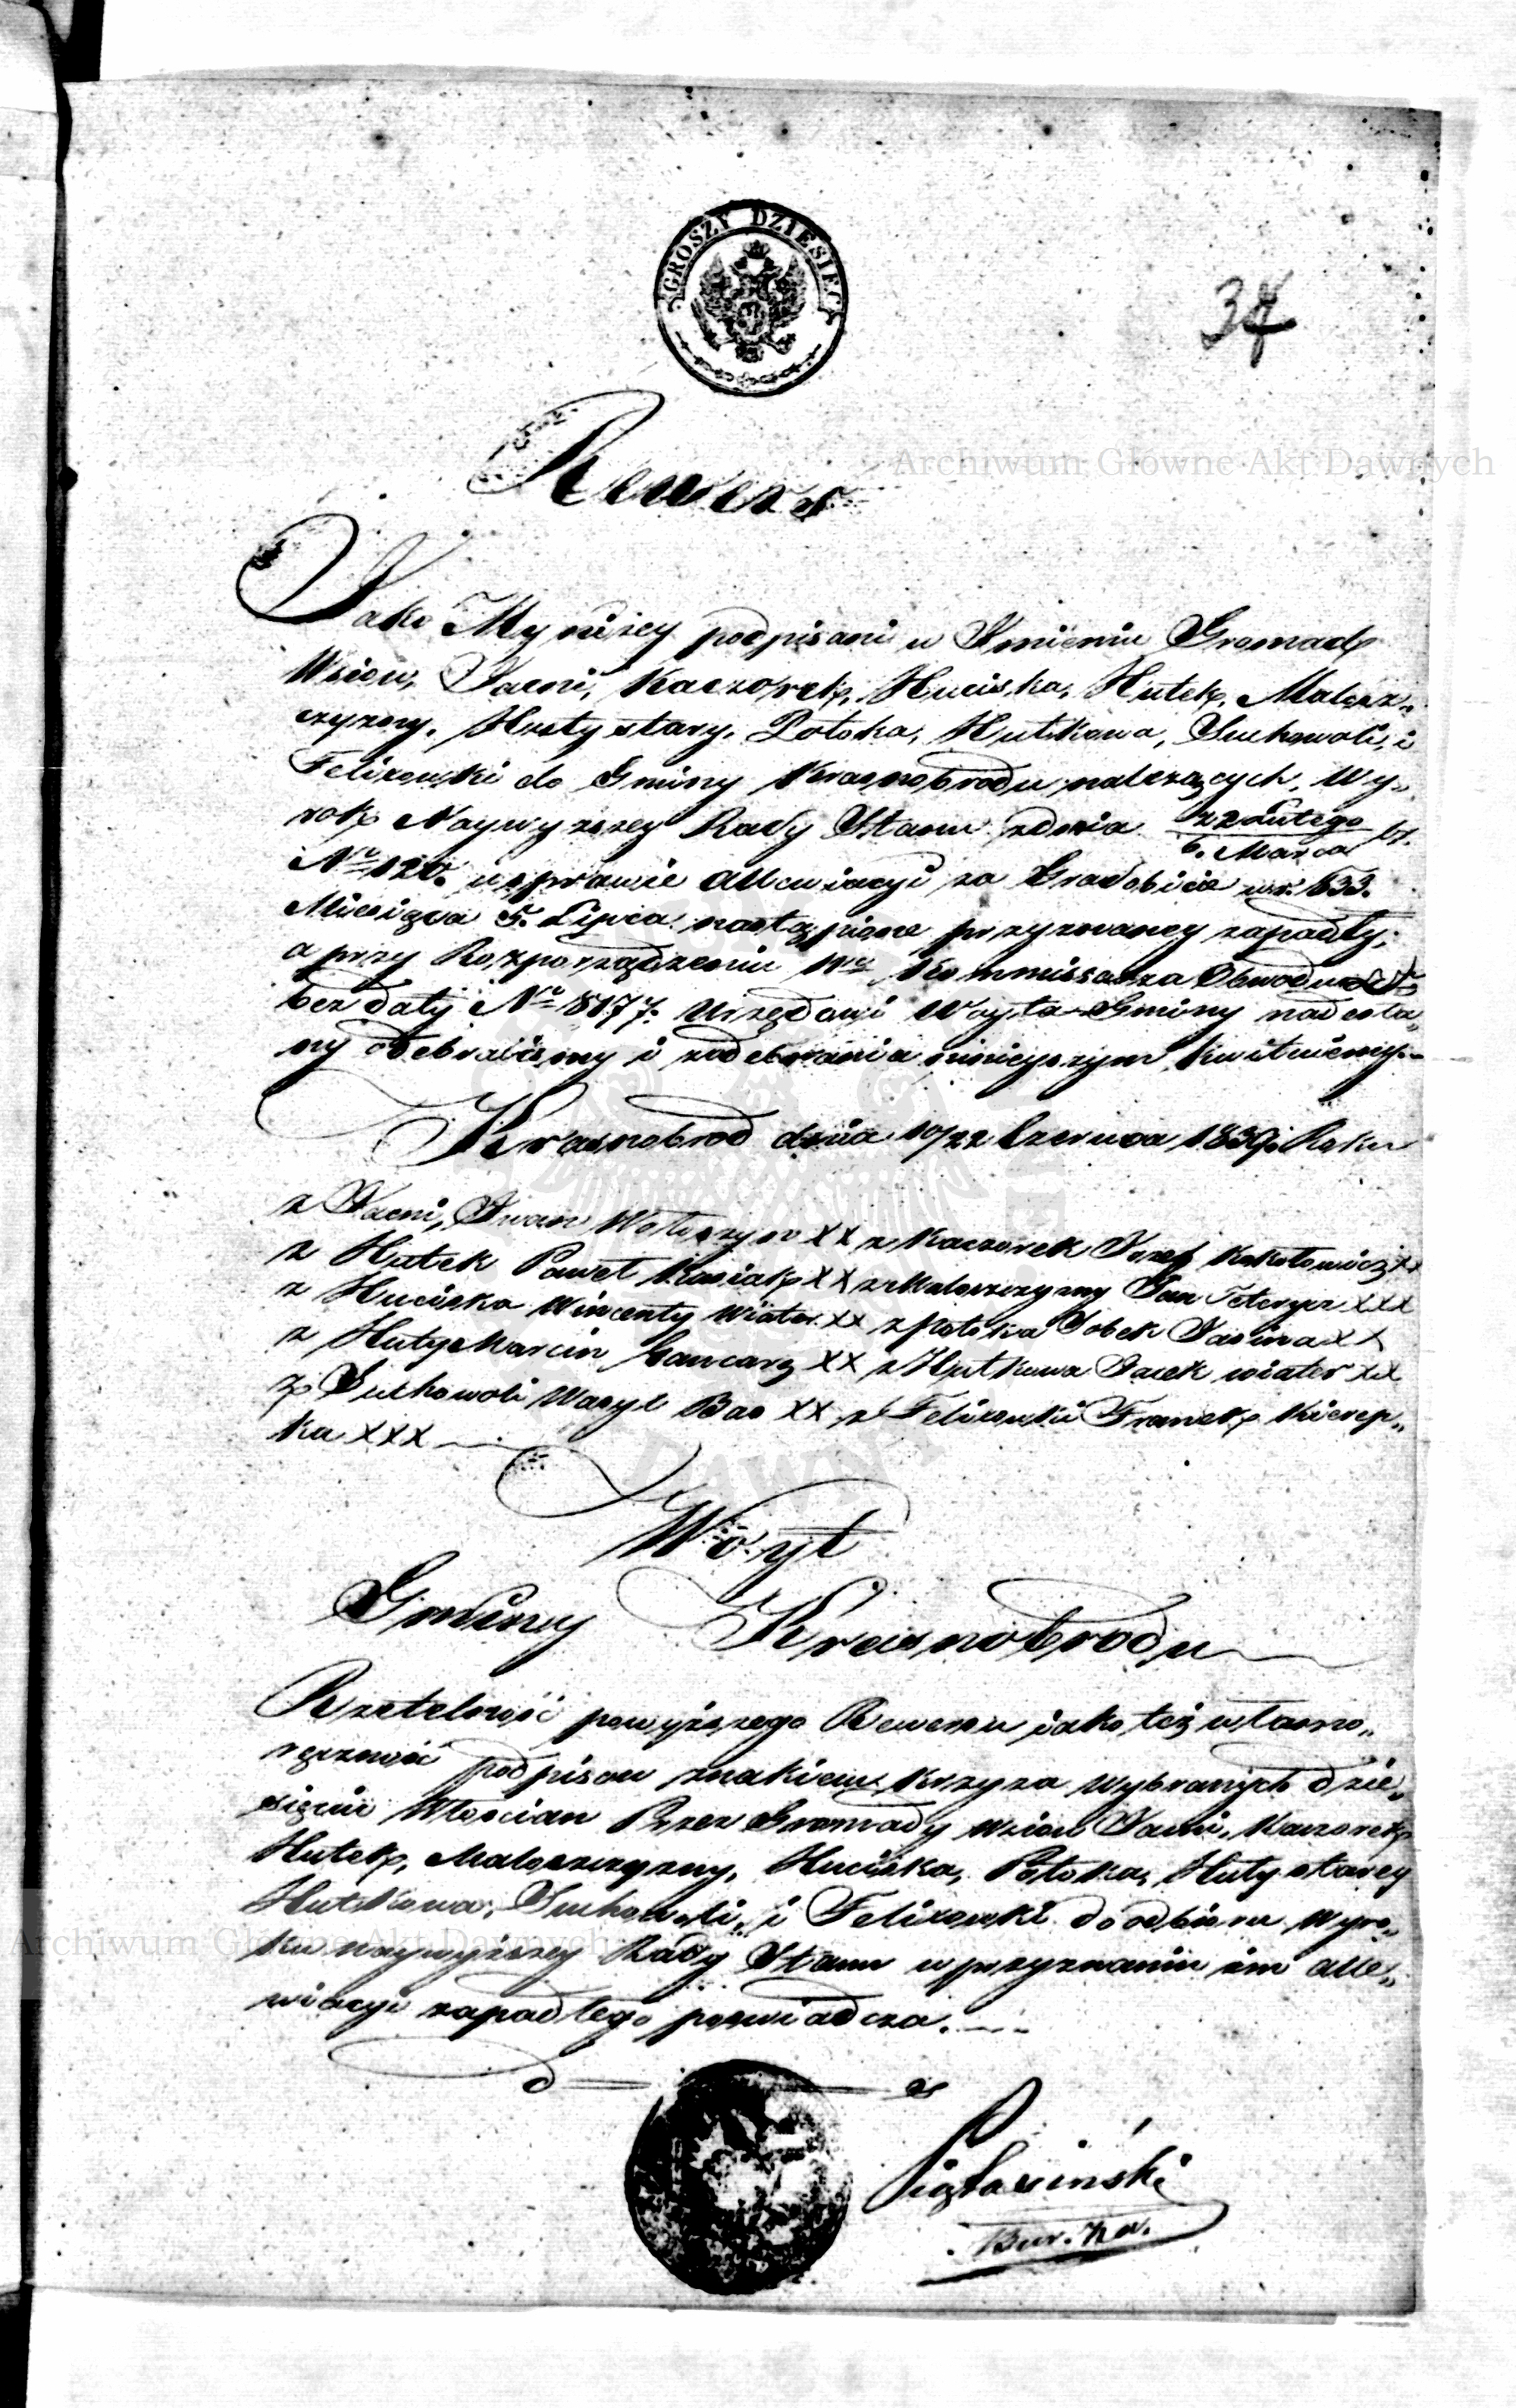 GROSZY DZIESIĘĆ
34
Archiwum Główne Akt Dawnych
Rewers
Jako My niżey podpisani w Imieniu Gromad
Wsiow, Jacni, Kaczorek, Huciska, Hutek, Malesz„
czyzny, Huty stary, Potoka, Hutkowa, Suchowoli, i
Felixowki do Gminy Krasnobrodu należących, Wy„
rok Naywyższey Rady Stanu z dnia 22 Lutego
6. Marca
No 120. w sprawie allewiacyi za Gradobicie w r. 833.
Miesiąca 5. Lipca nastąpione przyznaney zapadły;
a przy Rozporządzeniu Wgo Kommissarza Obwodu
bez daty No 8177. Urzędowi Woyta Gminy nadesła„
ny odebraliśmy i z odebrania ninieyszym kwituiemy.
Krasnobrod dnia 10/22 Czerwca 1839. Roku
z Jacni, Iwan Wołoszyn XX z Kaczorek Jozef Kokotowicz XX
z Hutek Paweł Kusiak XX z Maleszczyzny Jan Teterycz XXX
z Huciska Wincenty Wiater XX z Potoka Sobek Jasina XX
z Huty Marcin Gancarz XX z Hutkowa Jacek wiater XX
z Suchowoli Wasyl Bas XX z Felixowki Franek Kierep„
ka XXX
Woyt
Gminy Krasnobrodu
Rzetelność powyższego Rewersu jako też własno„
ręczność podpisow znakiem krzyża wybranych dzie„
sięciu Włościan Przez Gromady wsiow Jacni, Kaczorek
Hutek, Maleszczyzny, Huciska, Potoka, Huty starey
Hutkowa, Suchowoli, i Felixowki do odbioru Wyro„
ku naywyższey Rady Stanu w przyznaniu im alle„
wiacyi zapadłego poświadcza.
Archiwum Główne Akt Dawnych
Bur. Za.